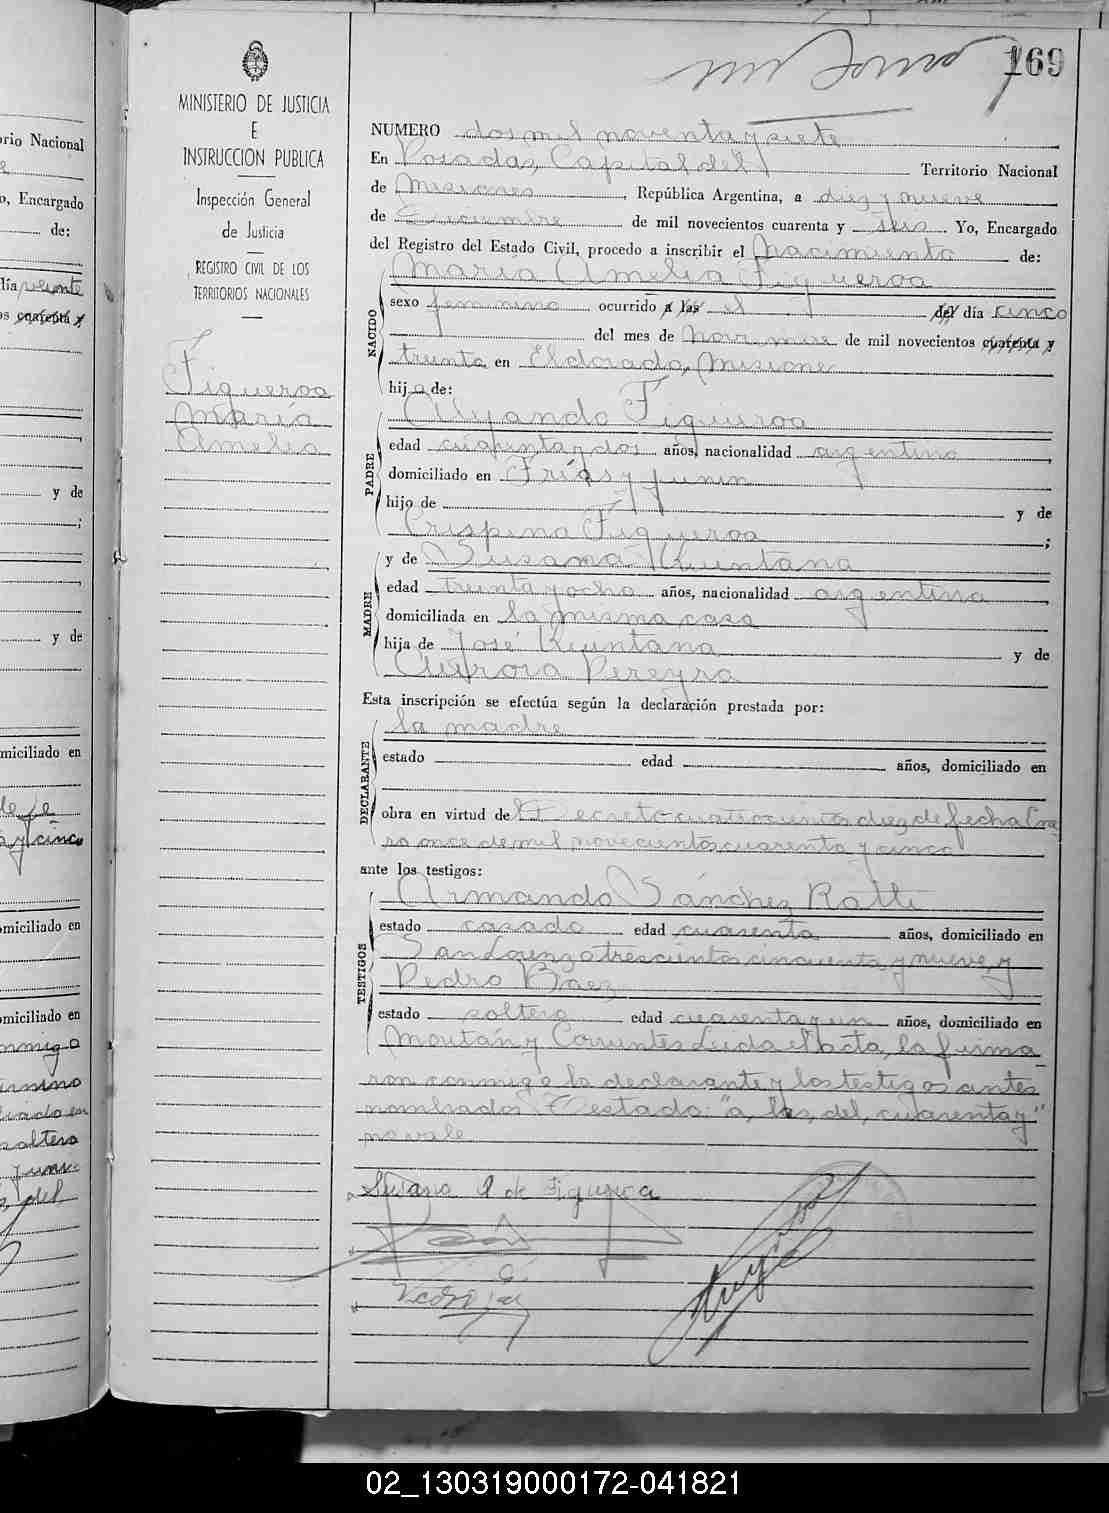 169
MINISTERIO DE JUSTICIA
E
INSTRUCCION PUBLICA
Inspección General
de Justicia
REGISTRO CIVIL DE LOS
TERRITORIOS NACIONALES
Figueroa
María
Amelia
NUMERO dos mil noventa y siete
En Posadas, Capital del Territorio Nacional
de Misiones, República Argentina, a diez y nueve
de Diciembre de mil novecientos cuarenta y seis Yo, Encargado
del Registro del Estado Civil, procedo a inscribir el Nacimiento de:
María Amelia Figueroa
NACIDO
sexo femenino ocurrido a las el del día cinco
del mes de Noviembre de mil novecientos cuarenta y
treinta en Eldorado, Misiones
hija de:
Figueroa
PADRE
edad cuarenta y dos años, nacionalidad argentino,
domiciliado en Frías y Junín
hijo de y de
Crispina Figueroa;
y de Susana Quintana
MADRE
edad treinta y ocho años, nacionalidad argentina,
domiciliada en la misma casa
hija de José Quintana y de
Aurora Pereyra
Esta inscripción se efectúa según la declaración prestada por:
la madre
DECLARANTE
estado edad años, domiciliado en
obra en virtud del Decreto cuatrocientos diez de fecha Ene
ro once de mil novecientos cuarenta y cinco
ante los testigos:
Armando Sánchez Ratti
TESTIGOS
estado casado edad cuarenta años, domiciliado en
San Lorenzo trescientos cincuenta y nueve, y
Pedro Baez
estado soltero edad cuarenta y un años, domiciliado en
y Corrientes Leida el acta, la firma
ron conmigo la declarante y los testigos antes
nombrados Testado: "a, las, del, cuarenta y"
no vale
de Figueroa
rio Nacional
o, Encargado
de:
día veinte
os cuarenta y
y de
y de
miciliado en
y cinco
miciliado en
miciliado en
soltero
02_130319000172-041821